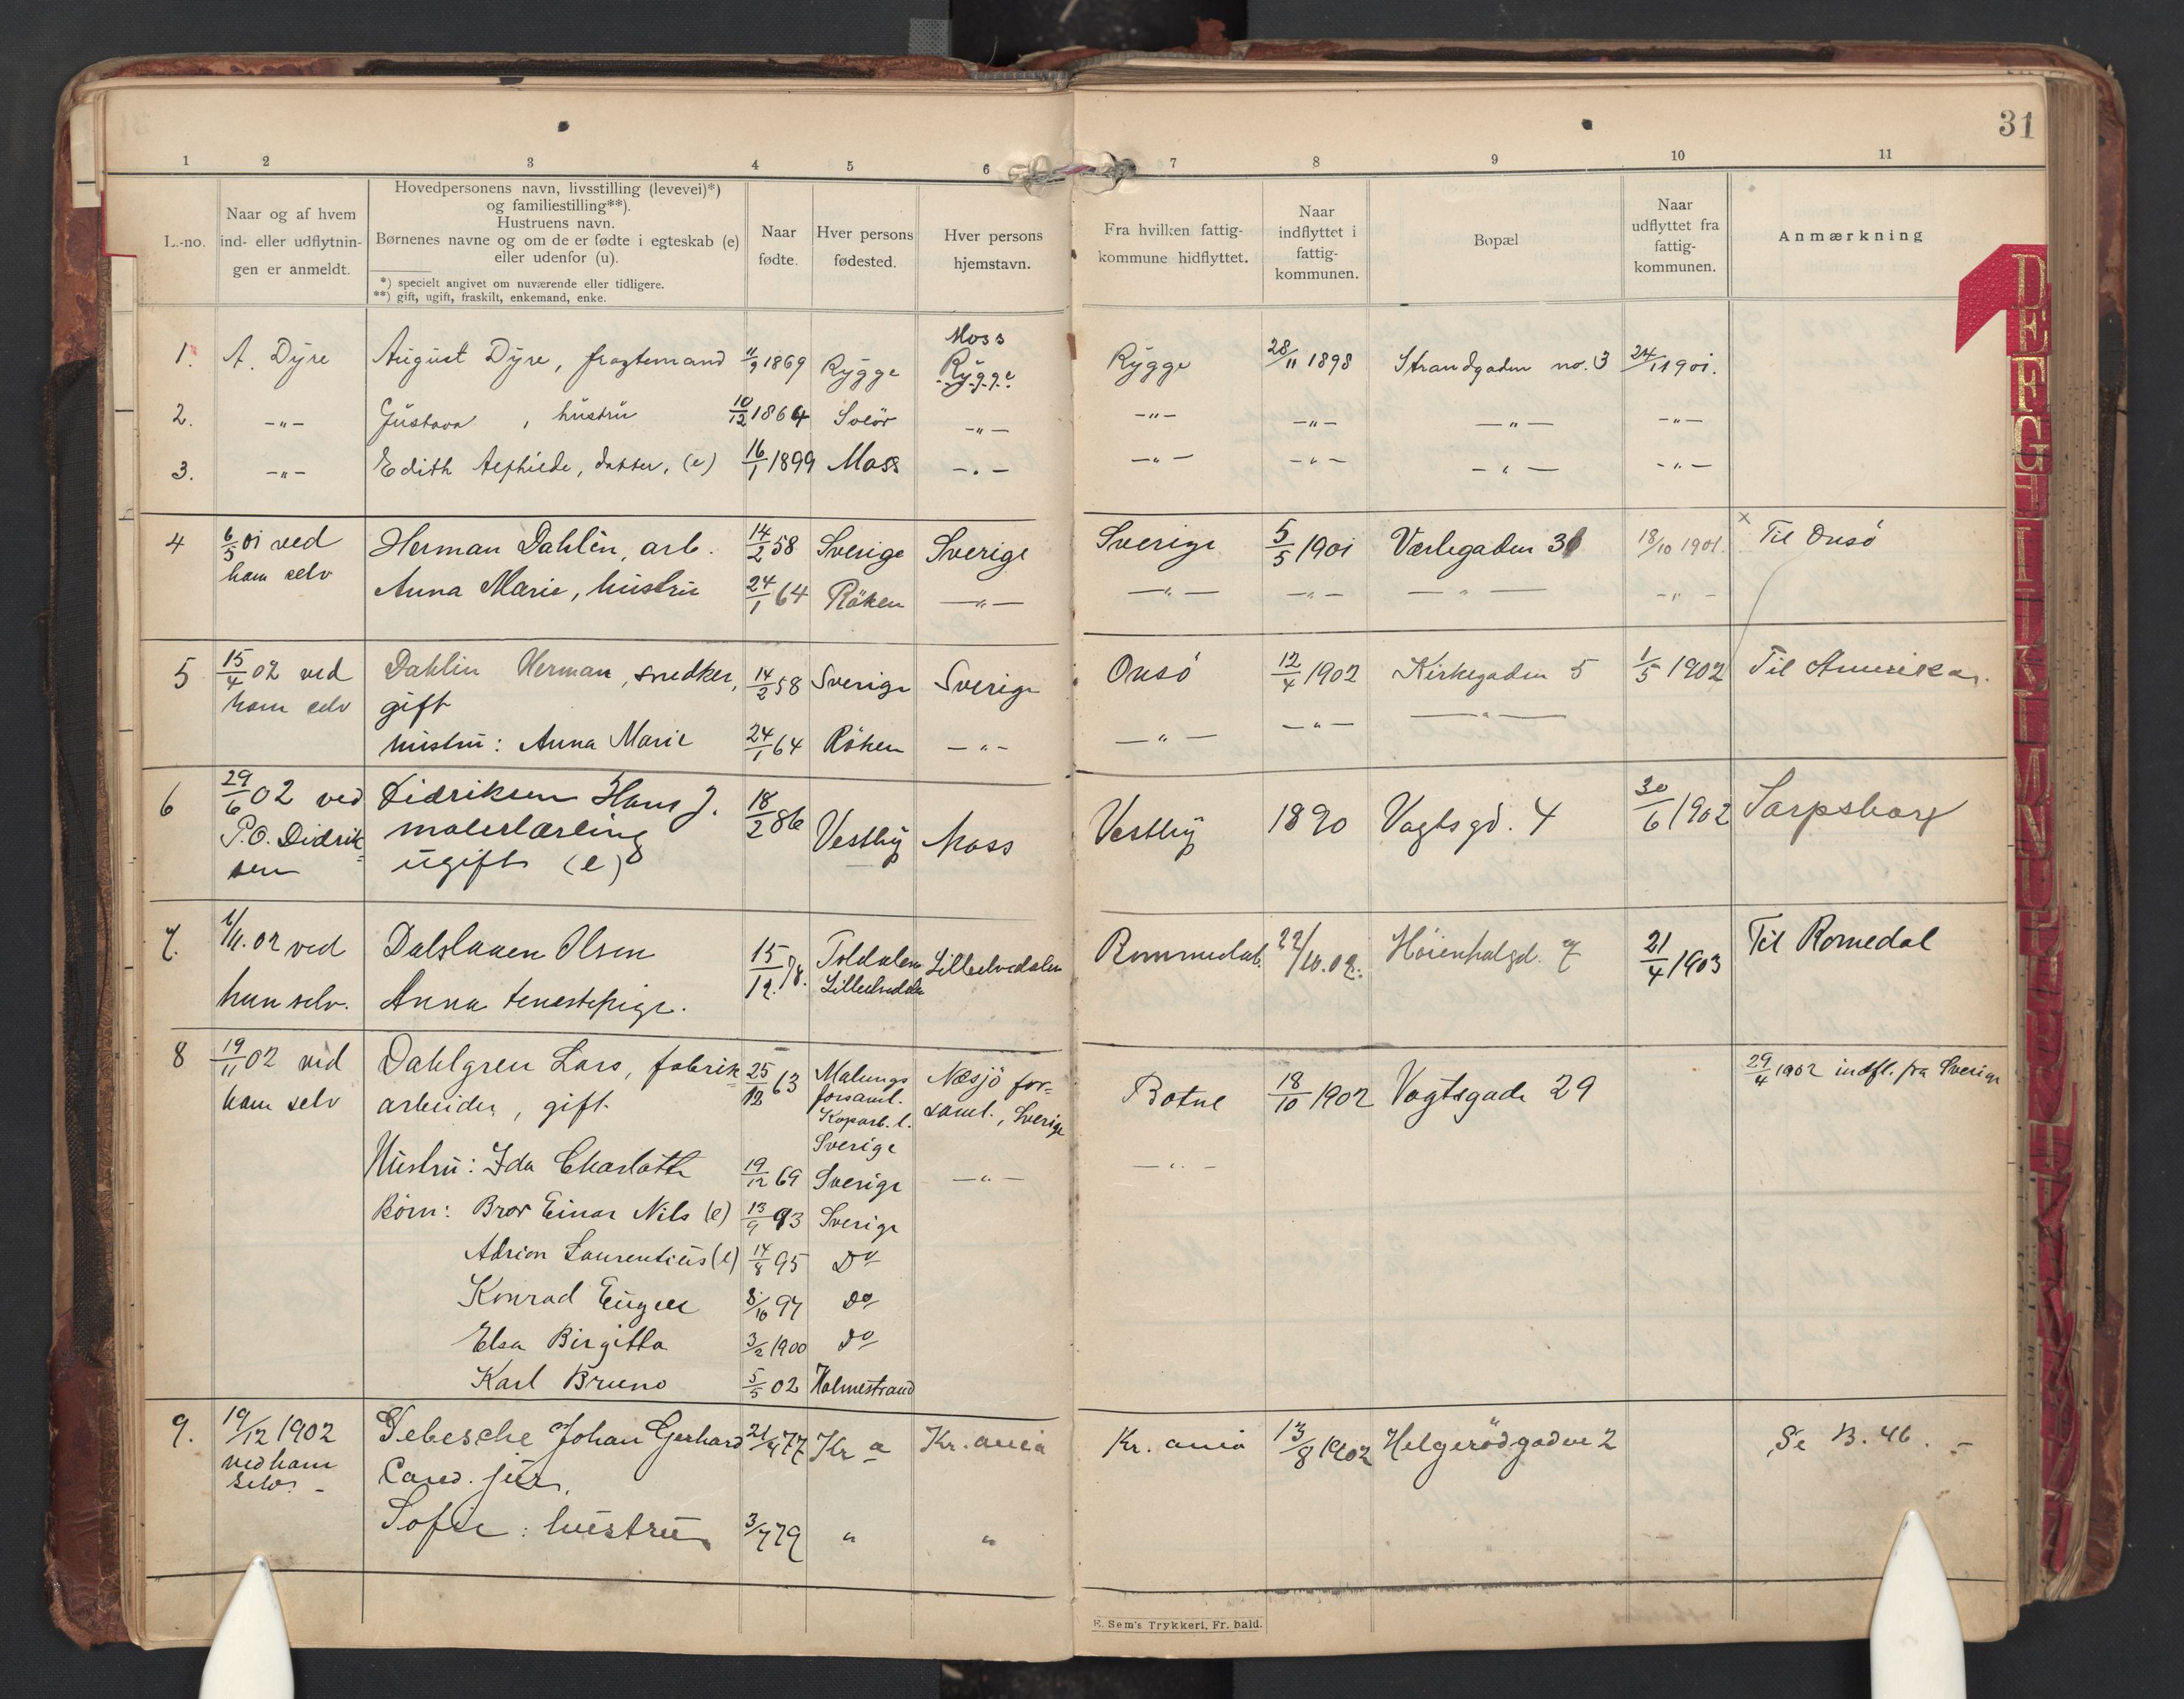 31
1 2 3 4 5 6 7 8 9 10 11
L.-no.
Naar og af hvem
ind- eller udflytnin-
gen er anmeldt.
Hovedpersonens navn, livsstilling (levevei)*)
og familiestilling**).
Hustruens navn.
Børnenes navne og om de er fødte i egteskab (e)
eller udenfor (u).
*) specielt angivet om nuværende eller tidligere.
**) gift, ugift, fraskilt, enkemand, enke.
Naar
fødte.
Hver persons
fødested.
Hver persons
hjemstavn.
Fra hvilken fattig-
kommune hidflyttet.
Naar
indflyttet i
fattig-
kommunen.
Bopæl
Naar
udflyttet fra
fattig-
kommunen.
Anmærkning
Moss
1. A. Dyre August Dyre, fragtemand 11/9 1869 Rygge Rygge Rygge 28/11 1898 Strandgaden no. 3 24/1 1901.
2. -"- Gustava , hustru 10/12 1864 Solör -"- -"- -"- -"- -"-
3. -"- Edith , datter, (e) 16/1 1899 Moss -"- -"- -"- -"- -"-
4 6/5 01 ved Herman Dahlin, arb. 14/2 58 Sverige Sverige Sverige 5/5 1901 Værlegaden 18/10 1901. × Til Onsö
ham selv Anna Marie, hustru 24/1 64 Röken -"- -"- -"- -"- -"-
5 15/4 02 ved Dahlin Herman, snedker, 14/2 58 Sverige Sverige Onsö 12/4 1902 Kirkegaden 5 1/5 1902 Til Amerika.
ham selv gift
hustru: Anna Marie 24/1 64 Röken -"- -"- -"- -"-
6 29/6 02 ved Didriksen Hans J. 18/2 86 Vestby Moss Vestby 1890 Vogtsgd. 4 30/6 1902 Sarpsborg
P.O. Didrik= malerlærling
sen ugift (e)
7. 1/11. 02 ved Dalsløaen Olsen 15/12. 78. Toldalen Lilleelvedalen Rommedal. 22/10. 02. Høienhalgd. 7 21/4 1903 Til Romedal
hun selv. Anna tenestepige. Lilleelvedalen
8 19/11 02 ved Dahlgren Lars, fabrik= 25/12 63 Malungs Næsjö for= Botne 18/10 1902 Vogtsgade 29 29/4 1902 indfl. fra Sverige
ham selv arbeider, gift. forsaml. saml., Sverige
Koparb. l.
Sverige
Hustru: Ida Charlotte 19/12 69 Sverige -"- -"-
Börn: Bror Einar Nils (e) 13/9 93 Sverige
Adrian Laurentius (e) 14/8 95 Do
Konrad Eugen 8/10 97 do
Elsa Birgitta 3/2 1900 do
Karl Bruno 5/5 02 Holmestrand
9. 19/12 1902 Johan Gerhard 21/4 77 Kr a Kr. ania Kr. ania 13/8 1902 Helgerödgaden 2 Se B. 46. -
ved ham Cand. jur.
selv. -
Sofie: hustru 3/7 79 " "
E. Sem's Trykkeri, Fr. hald.
D
E
F
G
H
I
J
K
L
M
N